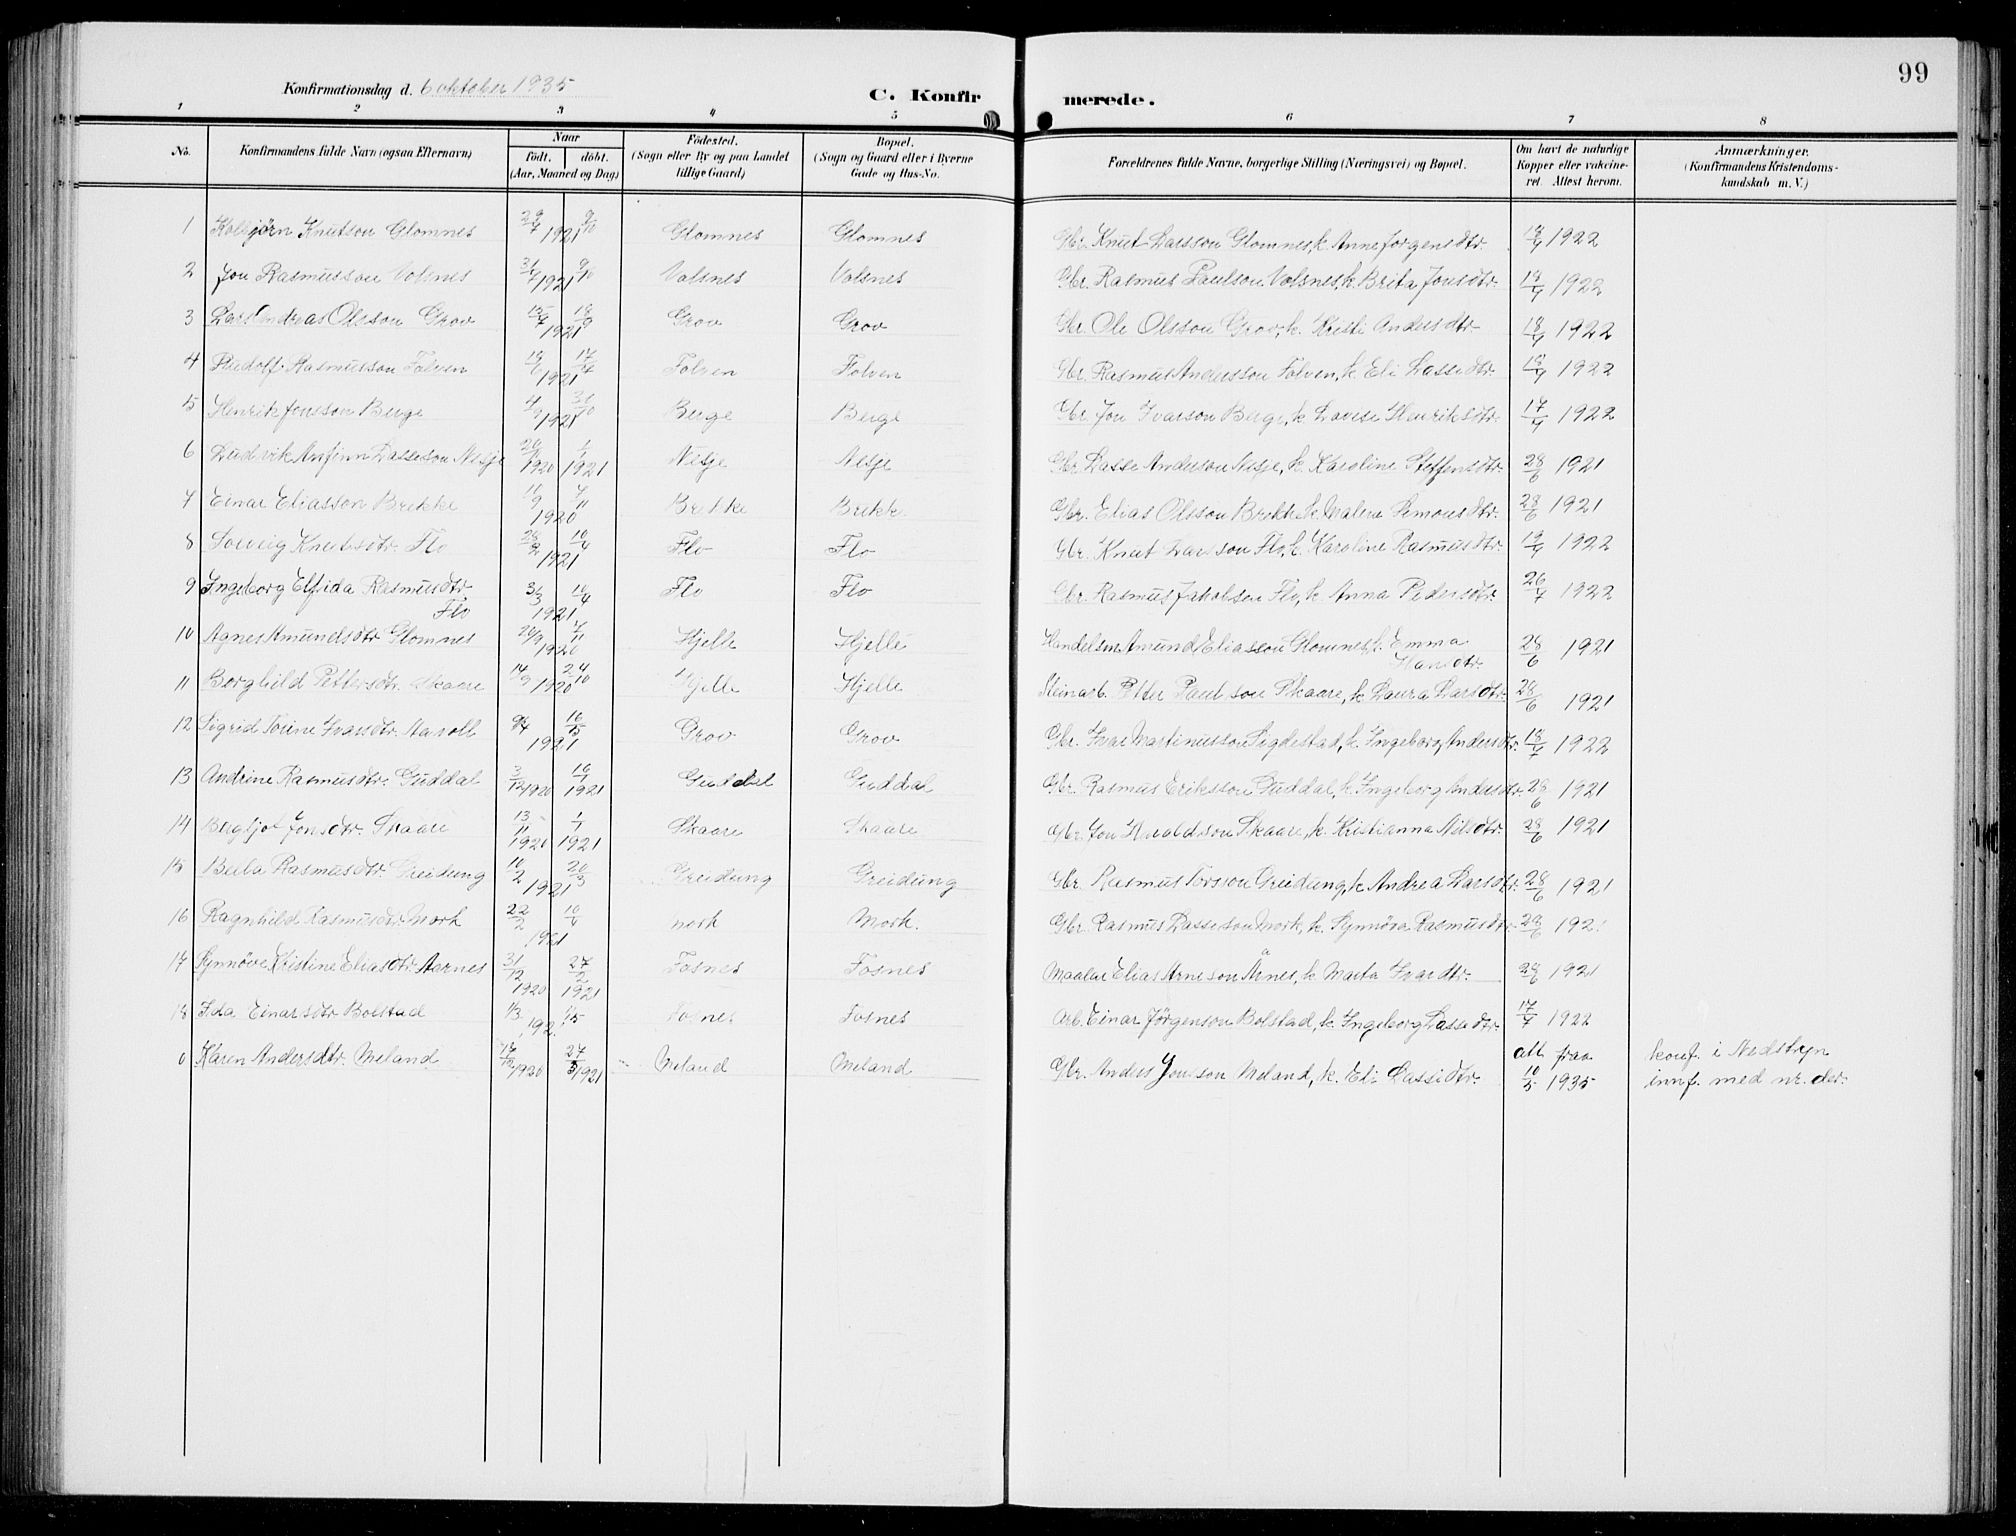 99
Konfirmationsdag d. 6 oktober 1935
C. Konfirmerede.
1 2 3 4 5 6 7 8
No. Konfirmandens fulde Navn (ogsaa Efternavn) Naar födt. döbt. (Aar, Maaned og Dag) Födested. (Sogn eller By og paa Landet tillige Gaard) Bopæl. (Sogn og Gaard eller i Byerne Gade og Hus-No. Forældrenes fulde Navne, borgerlige Stilling (Næringsvei) og Bopæl. Om havt de naturlige Kopper eller vakcineret. Attest herom. Anmærkninger. (Konfirmandens Kristendomskundskab m. V.)
1 Kolbjørn Knutson Glomnes 29/7 1921 9/10 Glomnes Glomnes Gbr. Knut Lassson Glomnes, k. Anne Jørgensdtr. 18/7 1922
2 Jon Rasmusson Volsnes 31/7 1921 9/10 Volsnes Volsnes Gbr. Rasmus Paulson Volsnes, k. Brita Jonsdtr. 18/7 1922
3 Lars Andreas Olsson Grov 15/7 1921 18/9 Grov Grov Gbr. Ole Olsson Grov, k. Kristi Andersdtr 18/7 1922
4 Rudolf Rasmusson Folven 19/6 1921 17/7 Folven Folven Gbr. Rasmus Andersson Folven, k. Eli Lassedtr. 18/7 1922
5 Henrik Jonsson Berge 4/9 1921 31/10 Berge Berge Gbr. Jon Ivarson Berge, k. Lovise Henriksdtr. 17/7 1922
6 Ludvik Anfinn Lasseson Nesje 1920 1/1 1921 Nesje Nesje Gbr. Lasse Anderson Nesje, k. Karoline Steffensdtr. 28/6 1921
7 Einar Eliasson Brekke 11/9 1920 7/11 Brekke Brekke Gbr. Elias Olsson Brekke, k. Malene Simonsdtr. 28/6 1921
8 Solveig Knutsdtr. Flo 28/2 1921 10/4 Flo Flo Gbr. Knut Larsson Flo, k. Karoline Rasmusdtr. 19/7 1922
9 Ingeborg Elfida Rasmusdtr. Flo 3/3 1921 10/4 Flo Flo Gbr. Rasmus Jakobsen Flo, k. Anna Pedersdtr. 26/7 1922
10 Agnes Amundsdtr Glomnes 26/9 1920 7/11 Hjelle Hjelle Handelsm. Amund Eliasson Glomnes, k. Emma Hansdtr. 28/6 1921
11 Borghild Pettersdtr. Skaare 14/9 1920 24/10 Hjelle Hjelle Steinarb. Petter Paulson Skaare, k. Laura Larsdtr. 28/6 1921
12 Sigrid Ivarsdtr. 1921 16/5 Grov Grov Gbr. Ivar Martinusson Sigdestad, k. Ingeborg Andersdtr. 18/7 1922
13 Andrine Rasmusdtr. Guddal 3/12 1920 16/1 1921 Guddal Guddal Gbr. Rasmus Eriksson Guddal, k. Ingeborg Andersdtr. 28/6 1921
14 Bergljot Jonsdtr. Skaare 13/11 1920 1/1 1921 Skaare Skaare Gbr. Jon Haraldson Skaare, k. Kristianna Nilsdtr. 28/6 1921
15 Rasmusdtr. Greidung 10/2 1921 20/3 Greidung Greidung Gbr. Rasmus Torsson Greidung, k. Andrea Larsdtr. 28/6 1921
16 Ragnhild Rasmusdtr. Mork 22/2 1921 10/4 Mork Mork. Gbr. Rasmus Lasseson Mork, k. Synnøva Rasmusdtr. 28/6 1921
17 Synnøve Kristine Eliasdtr. Aarnes 31/12 1920 27/2 1921 Fosnes Fosnes Maalar Elias Arneson Årnes, k. Marta Ivardtr. 28/6 1921
18 Ida Einarsdtr Bolstad 1/3 1921 1/5 Fosnes Fosnes Arb. Einar Jørgenson Bolstad, k. Ingeborg Lassedtr. 17/7 1922
0 Karen Andersdtr. Meland 17/12 1920 27/3 1921 Meland Meland Gbr. Anders Jonsson Meland, k. Eli Lassedtr. att. fraa 10/5 1935 konf. i Nedstryn innf. med nr. der.